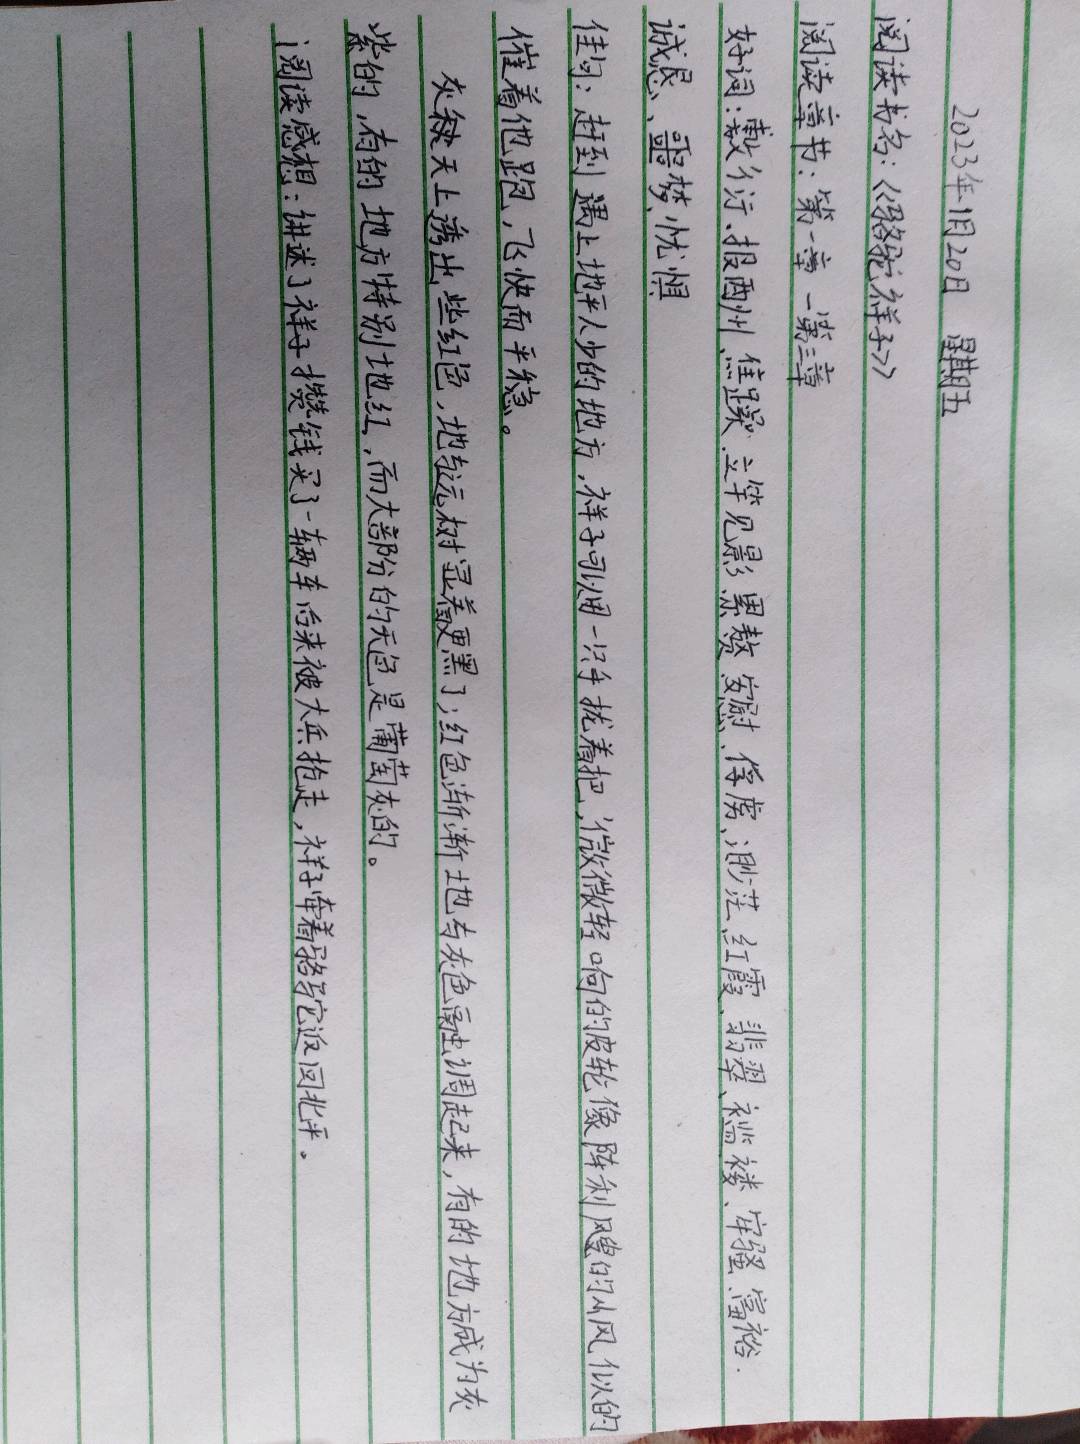 2023年1月20日 星期五
阅读书名：《骆驼祥子》
阅读章节：第一章—第三章
好词：敷衍、报两州、焦躁、立竿见影、累赘、安慰、俘虏、渺茫、红霞、翡翠、褴褛、牢骚、富裕、
诚恳、噩梦、忧惧
佳句：赶到遇上地平人少的地方，祥子可以用一只手拢着把，微微轻响的皮轮像阵利飕的小风似的
催着他跑，飞快而平稳。
灰天上透出些红色，地与远树显着更黑了；红色渐渐地与灰色融调起来，有的地方成为灰
紫的，有的地方特别地红，而大部份的天色是葡萄灰的。
阅读感想：讲述了祥子攒钱买了一辆车后来被大兵抢走，祥子牵着骆驼返回北平。